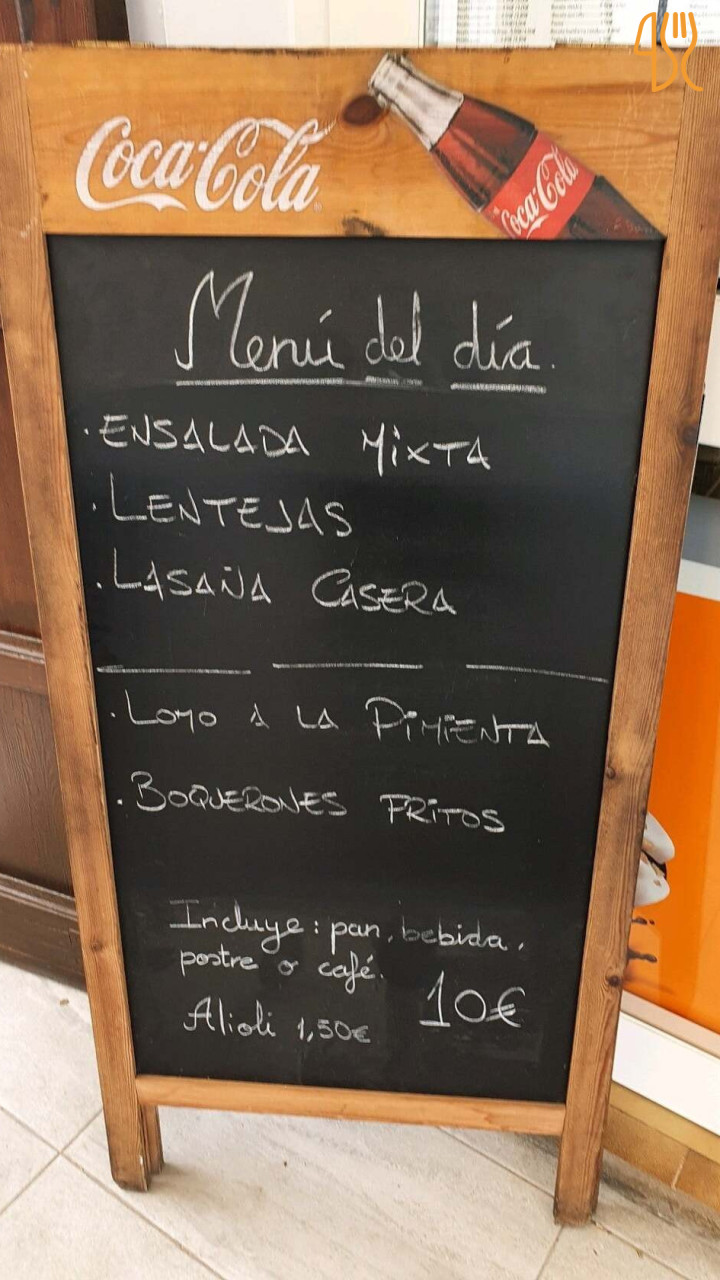 Coca-Cola
Coca-Cola
Menú del día.
· ENSALADA MixTA
· LENTEJAS
· LASAÑA CASERA
· LOMO A LA PiMiENTA
· BOQUERONES FRiTOS
Incluye: pan, bebida,
postre o café.
10€
Alioli 1,50€